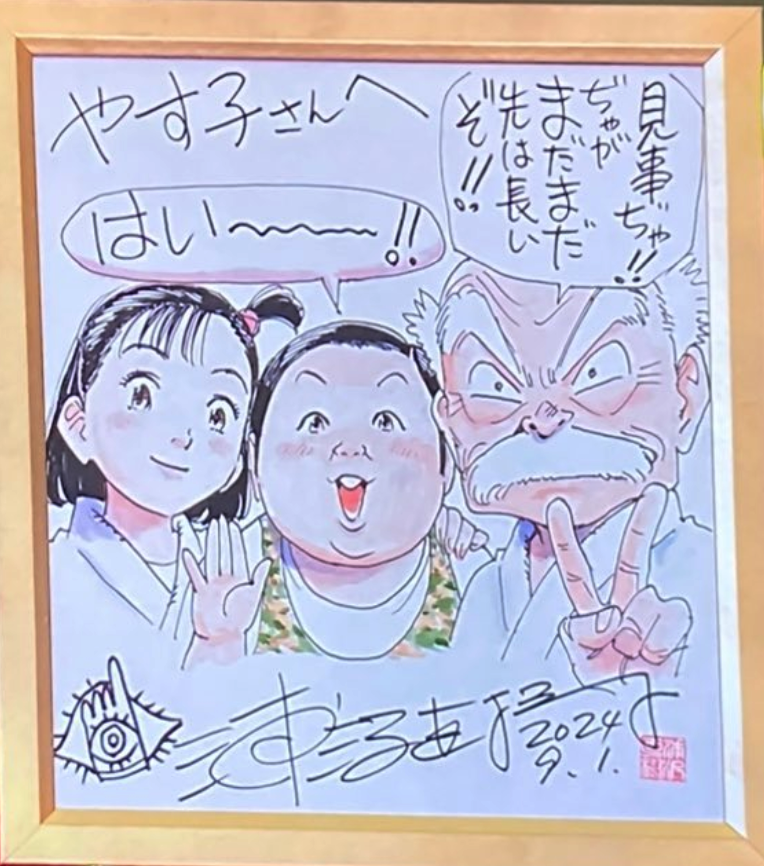 やす子さんへ
見事ぢゃ!!
ぢゃが
まだまだ
先は長い
ぞ!!
はい〜〜〜!!
2024
9.1.